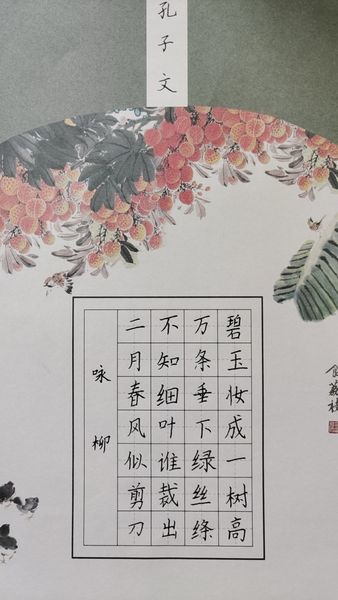 孔子文
咏柳
碧玉妆成一树高
万条垂下绿丝绦
不知细叶谁裁出
二月春风似剪刀